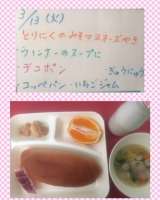 3/13(火)
とりにくのみそマヨネーズやき
ウィンナーのスープに
・デコポン ぎゅうにゅう
・コッペパン・いちごジャム